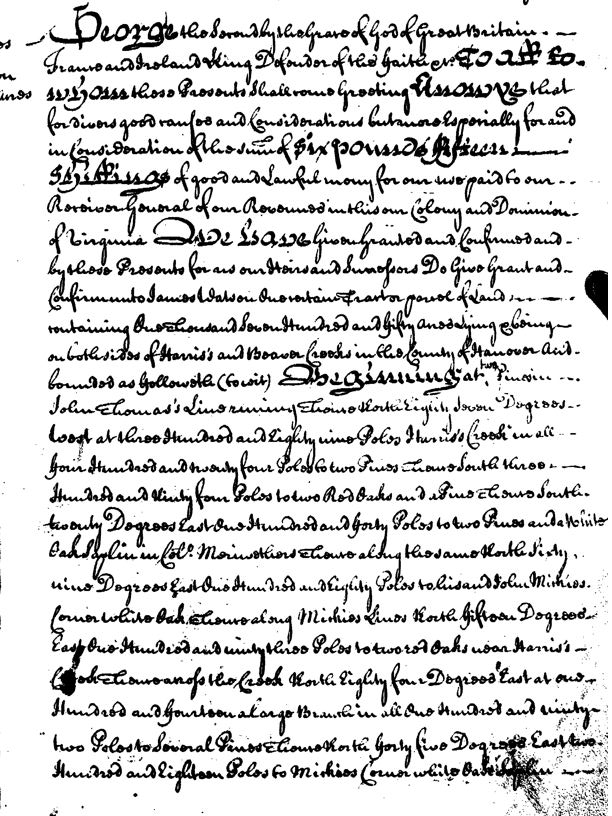 George the Second by the Grace of God of Great Britain
France and Ireland King Defender of the Faith &c. To all to
whom these Presents shall come Greeting Knowe that
for divers good causes and Considerations but more Especially for and
in Consideration of the sum of Six pounds fifteen
Shillings of good and Lawful mony for our use paid to our
Receiver General of our Revenues in this our Colony and Dominion
of Virginia We have Given Granted and Confirmed and
by these Presents for us our Heirs and Successors Do Give Grant and
Confirm unto James Watson One certain Tract or parcel of Land
containing One Thousand Seven Hundred and fifty Acres lying & being
on both sides of Harris's and Beaver Creeks in the County of Hanover And
bounded as followeth (to wit) Beginning at two Pines in
John Thomas's Line runing Thence North Eighty Seven Degrees
West at three Hundred and Eighty nine Poles Harris's Creek in all
four Hundred and twenty four Poles to two Pines Thence South three
Hundred and Ninty four Poles to two Red Oaks and a Pine Thence South
twenty Degrees East One Hundred and forty Poles to two Pines and a White
Oak Saplin in Col.º Meriwethers Thence along the same North Sixty
nine Degrees East One Hundred and Eighty Poles to his and John Michies
Corner white Oak Thence along Michies Lines North fifteen Degrees
East One Hundred and ninty three Poles to two red Oaks near Harris's
Creek Thence across the Creek North Eighty four Degrees East at one
Hundred and fourteen a large Branch in all One Hundred and ninty
two Poles to Several Pines Thence North forty five Degrees East two
Hundred and Eighteen Poles to Michies Corner white Oak Saplin